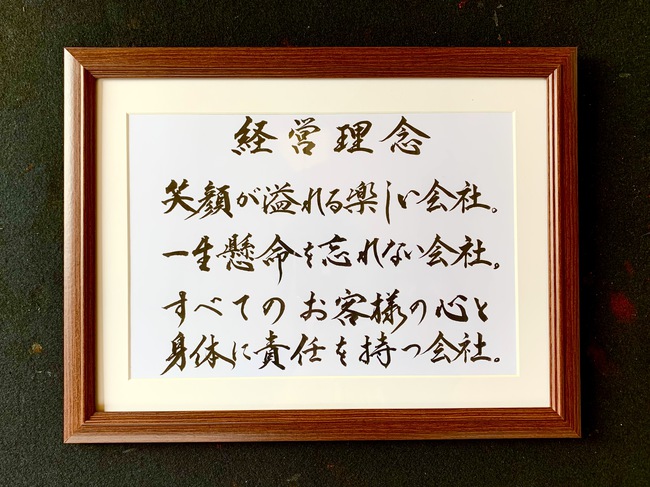 経営理念
笑顔が溢れる楽しい会社。
一生懸命を忘れない会社。
すべてのお客様の心と
身体に責任を持つ会社。